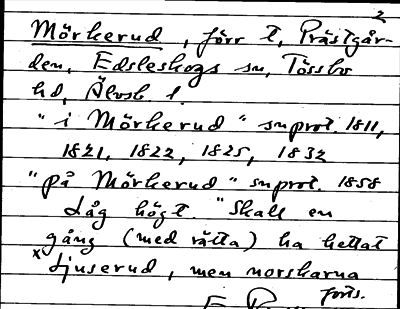 2
Mörkerud, förr t. Prästgår-
den, Edsleskogs sn, Tössbo
hd, Älvsb. l.
"i Mörkerud" snprot. 1811,
1821, 1822, 1825, 1832
"på Mörkerud" snprot. 1858
Låg högt. "Skall en
gång (med rätta) ha hettat
x Ljuserud, men norskarna
forts.